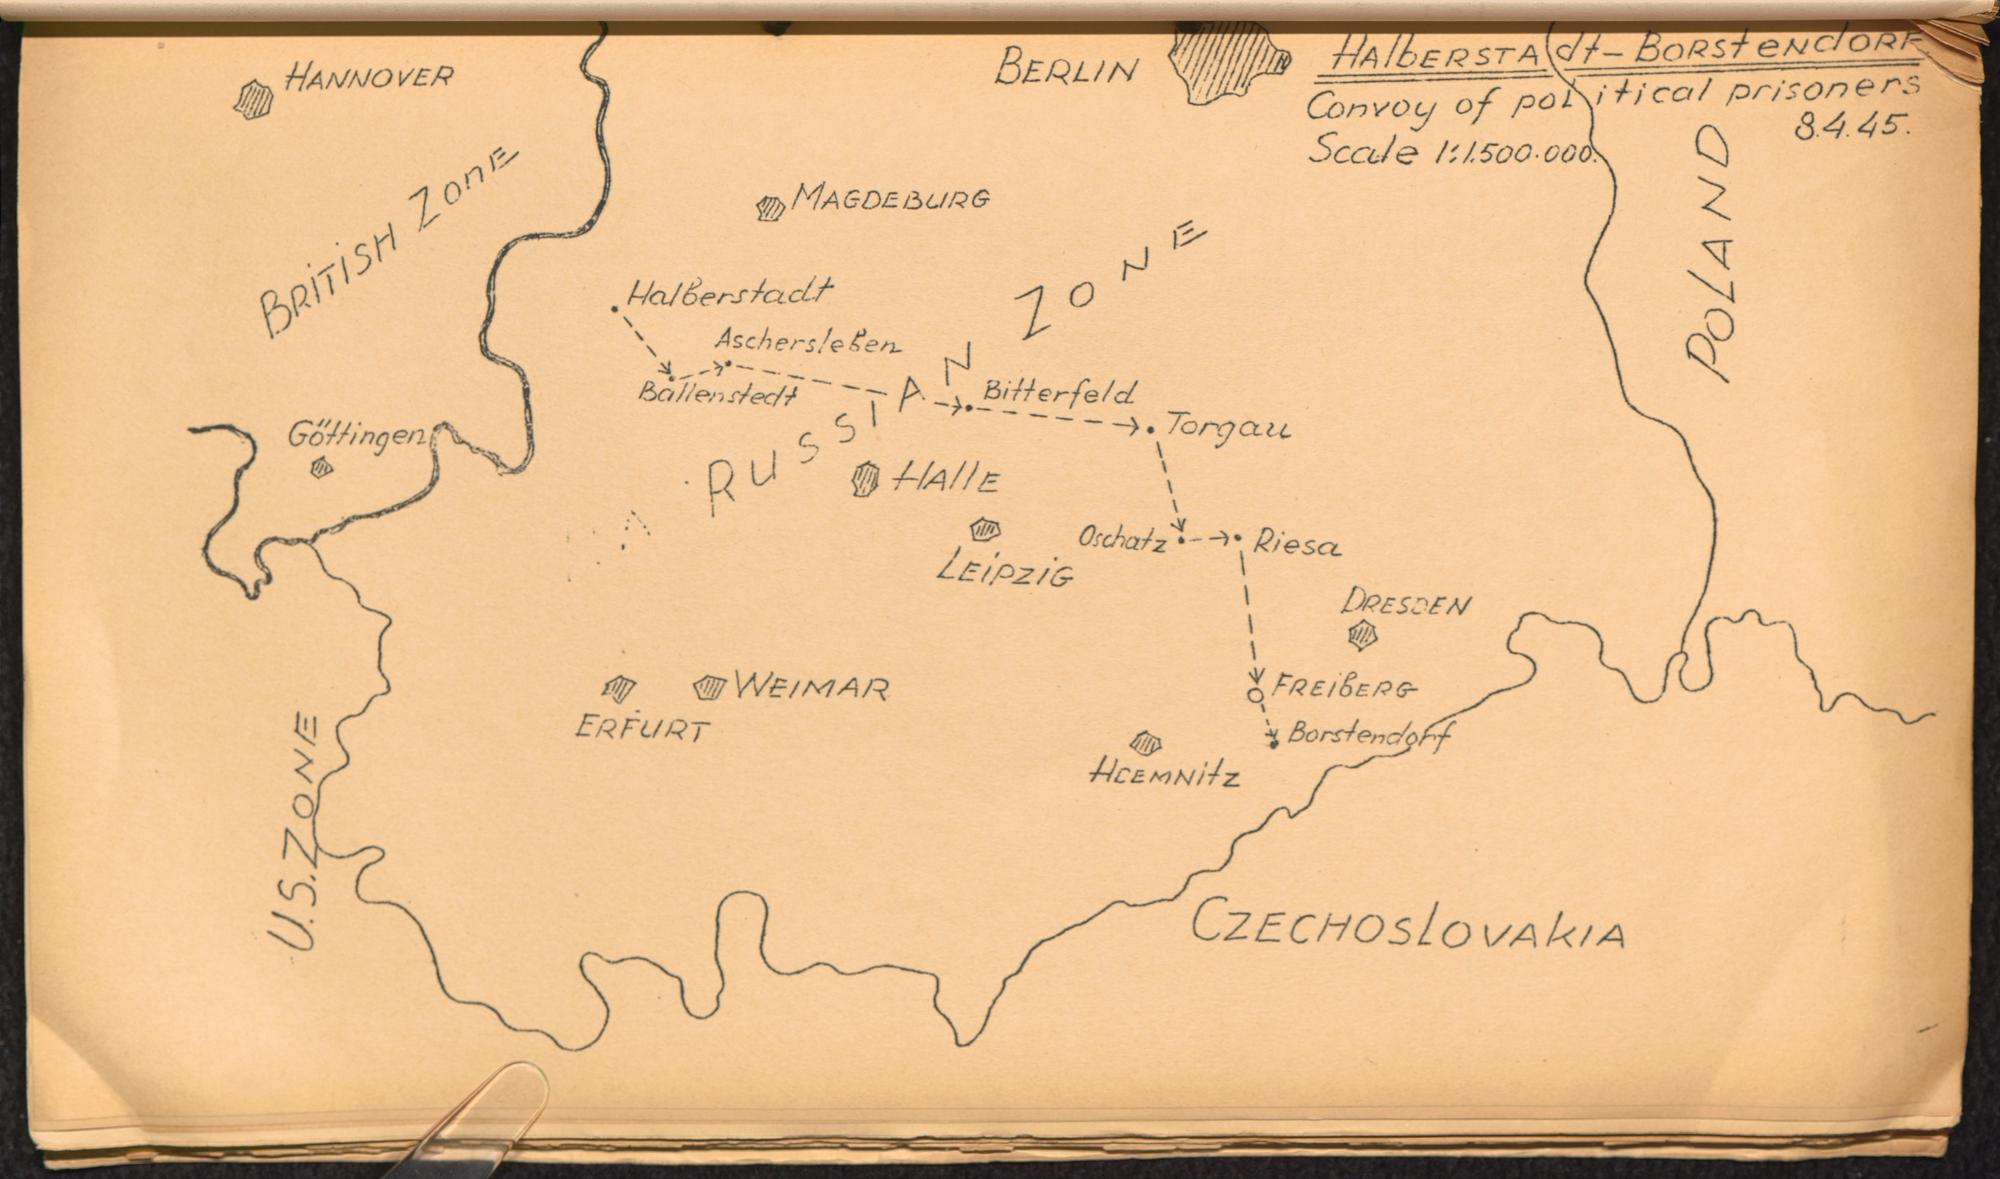 HANNOVER
BERLIN
HALBERSTADT-BORSTENDORF
Convoy of political prisoners
8.4.45.
Scale 1:1.500.000.
BRITISH ZONE
MAGDEBURG
POLAND
RUSSIAN ZONE
Halberstadt
Aschersleben
Ballenstedt
Bitterfeld
Torgau
Göttingen
HALLE
LEIPZIG
Oschatz
Riesa
DRESDEN
ERFURT
WEIMAR
FREIBERG
Borstendorf
HCEMNITZ
U.S. ZONE
CZECHOSLOVAKIA